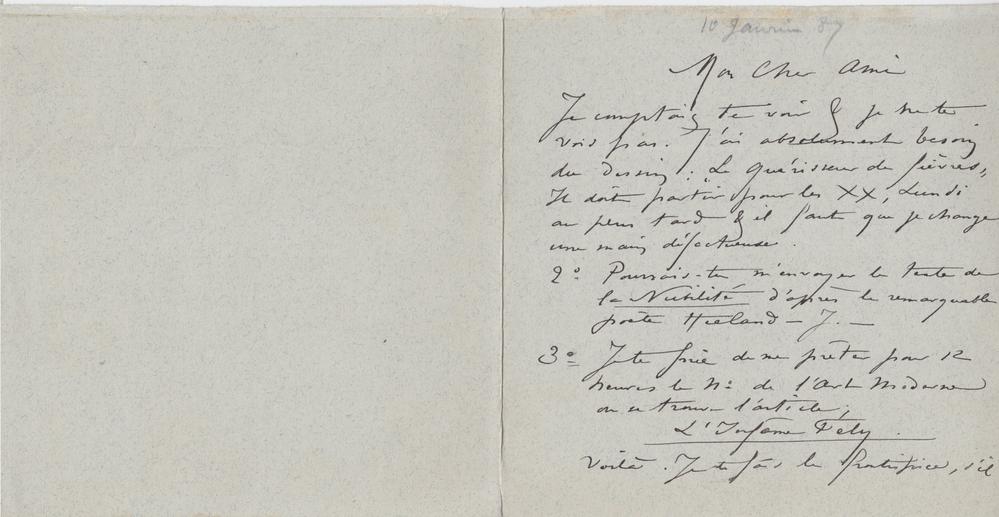 10 Janvier 87
Mon Cher Ami
Je comptais te voir & je ne te
vois pas. J'ai absolument besoin
du Dessin : Le Guérisseur de fièvres,
Il doit partir pour les XX, Lundi
au plus tard & il faut que je change
une main défectueuse.
2° Pourrais-tu m'envoyer le texte de
la Nubilité d'après le remarquable
poète – J. –
3° Je te prie de me prêter pour 12
heures le N° de l'Art Moderne
ou se trouve l'article,
L'Infâme Fély.
Voilà. Je te fais le sacrifice, s'il